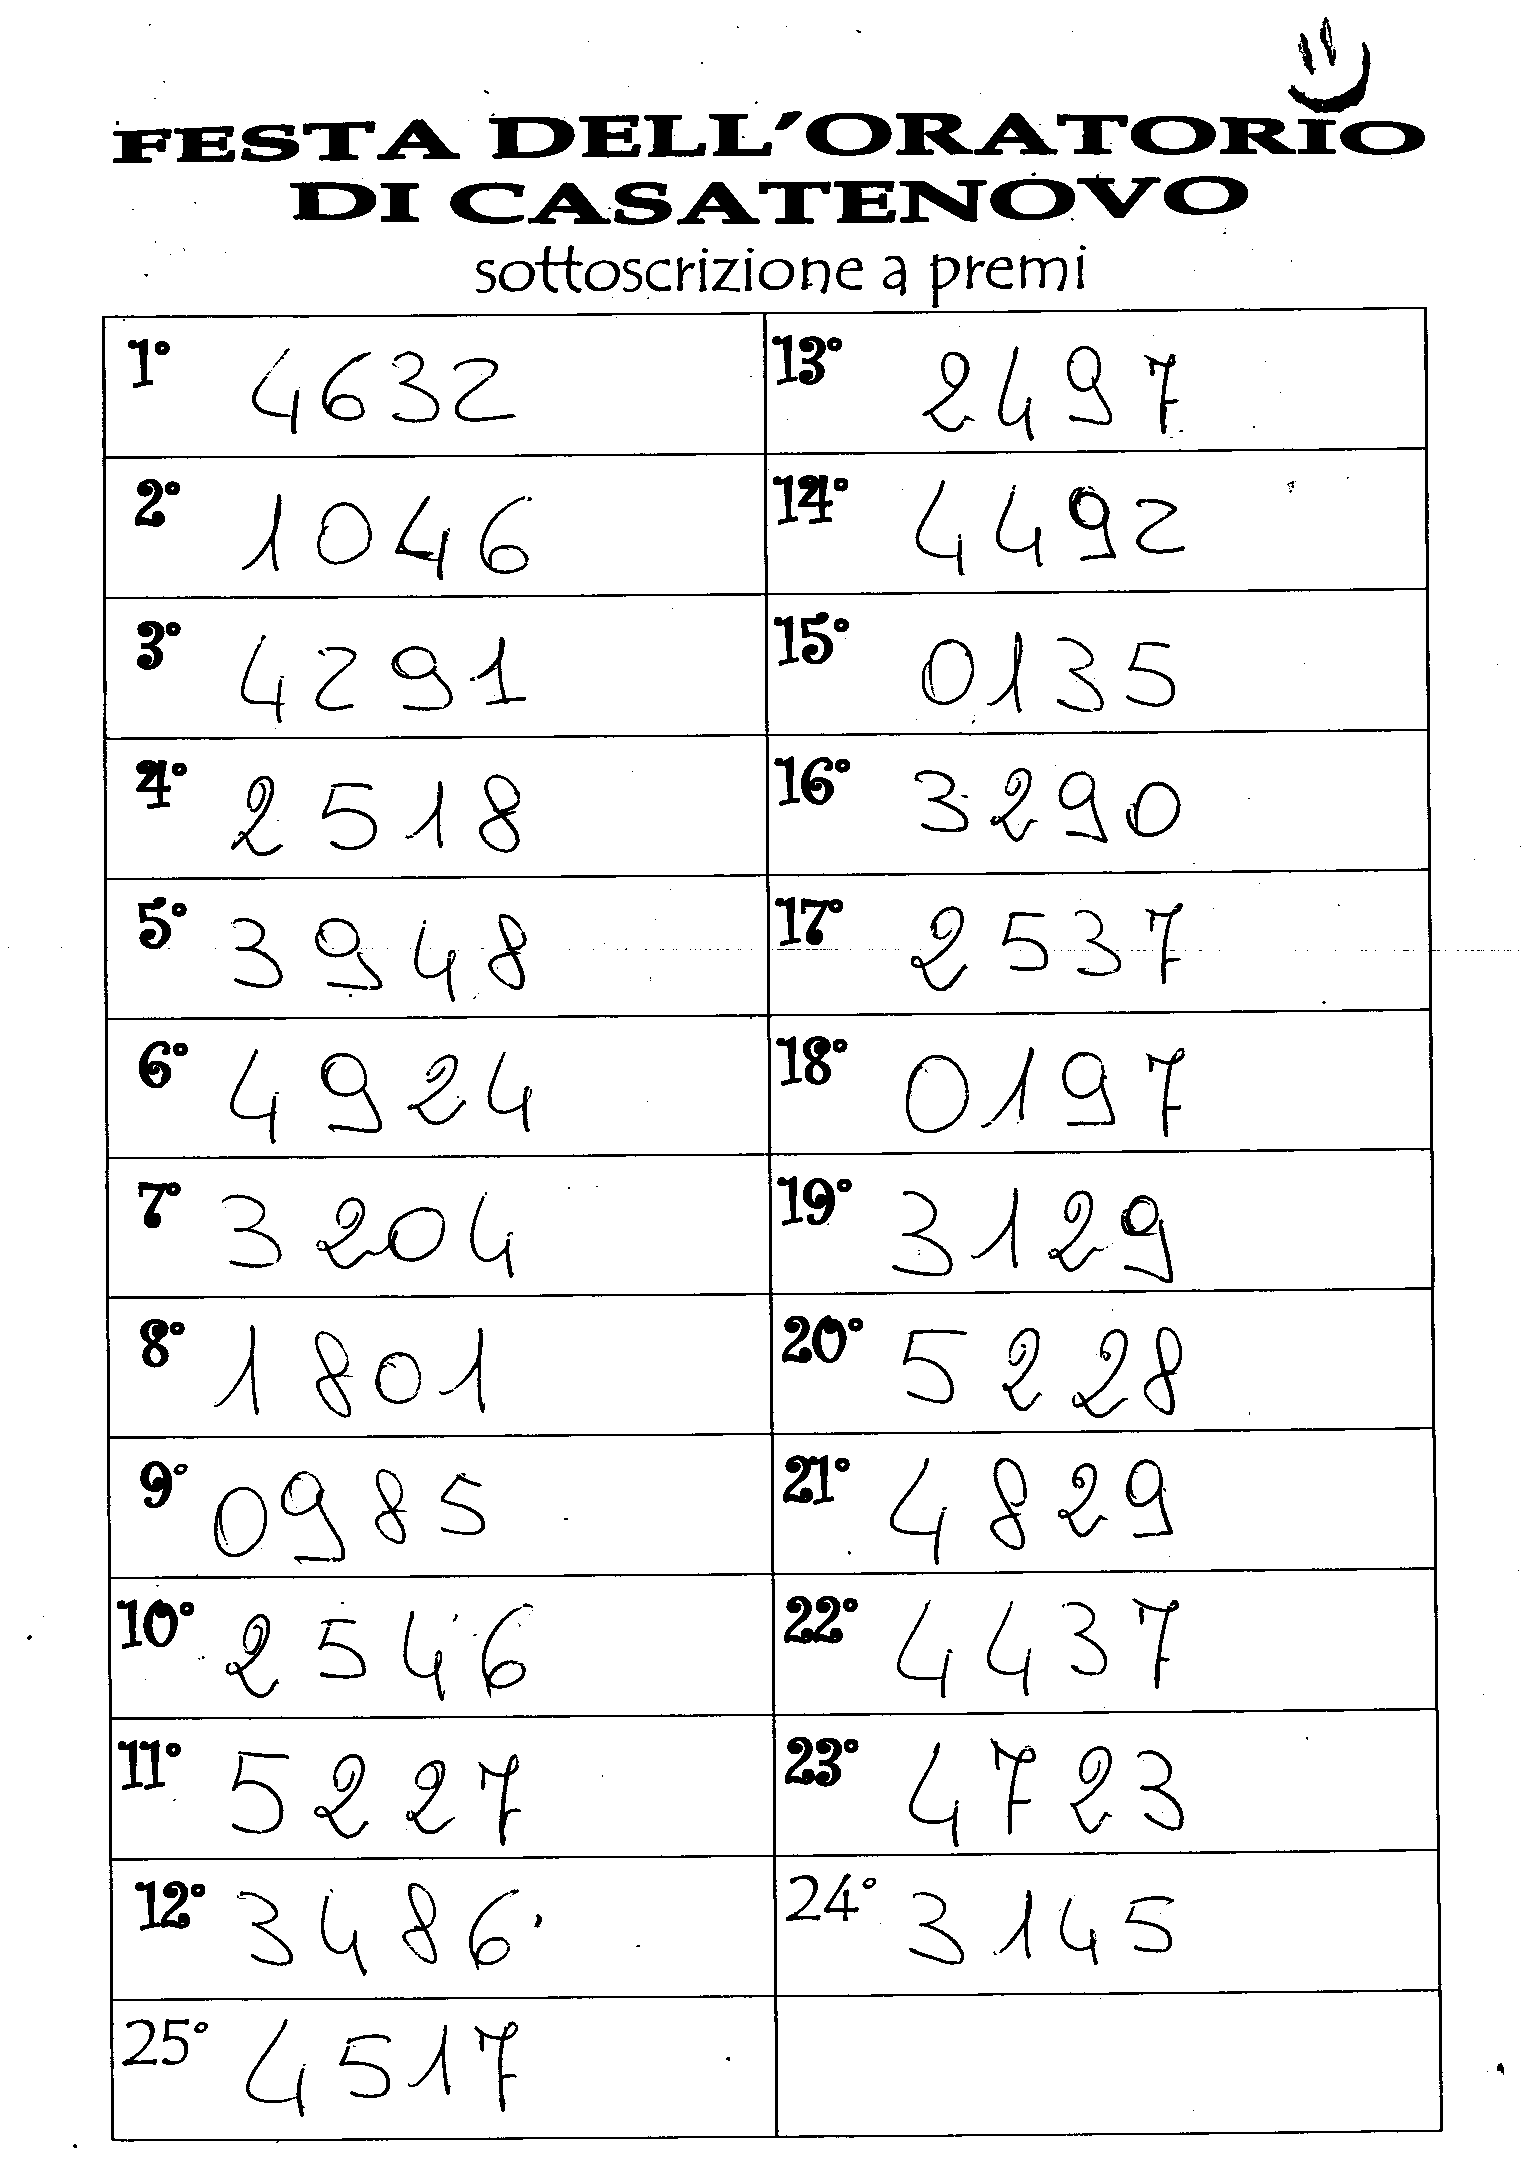 FESTA DELL'ORATORIO
DI CASATENOVO
sottoscrizione a premi
1° 4632
13° 2497
2° 1046
14° 4492
3° 4291
15° 0135
4° 2518
16° 3290
5° 3948
17° 2537
6° 4924
18° 0197
7° 3204
19° 3129
8° 1801
20° 5228
9° 0985
21° 4829
10° 2546
22° 4437
11° 5227
23° 4723
12° 3486
24° 3145
25° 4517